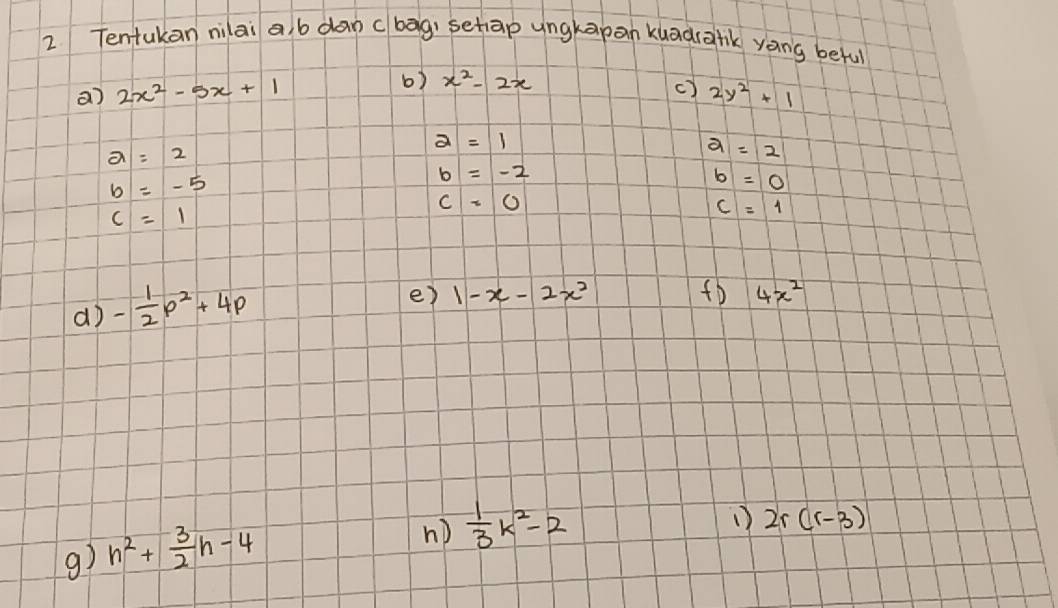 2 Tentukan nilai a,b dan c bagi setiap ungkapan kuadratik yang betul
a) 2x² - 5x + 1 b) x² - 2x c) 2y² + 1
a = 2 a = 1 a = 2
b = -5 b = -2 b = 0
c = 1 c = 0 c = 1
d) -1/2 p² + 4p e) 1 - x - 2x² f) 4x²
g) h² + 3/2 h - 4 h) 1/3 k² - 2 i) 2r (r-3)